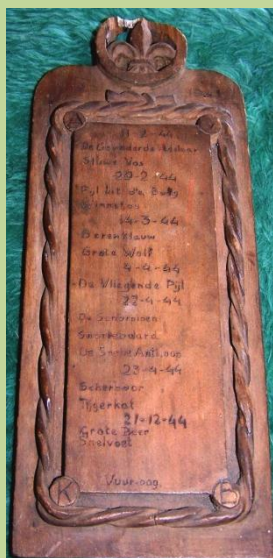 11-2-44
De Gevederde
Sluwe Vos
29-2-44
Pijl uit de Boog
Winnetou
14-3-44
Berenklauw
Grote Wolf
4-4-44
De Vliegende Pijl
22-4-44
De Schorpioen
Snorrebaard
De Antiloop
23-4-44
Scherpoor
Tijgerkat
21-12-44
Grote Beer
Snelvoet
Vuuroog
K